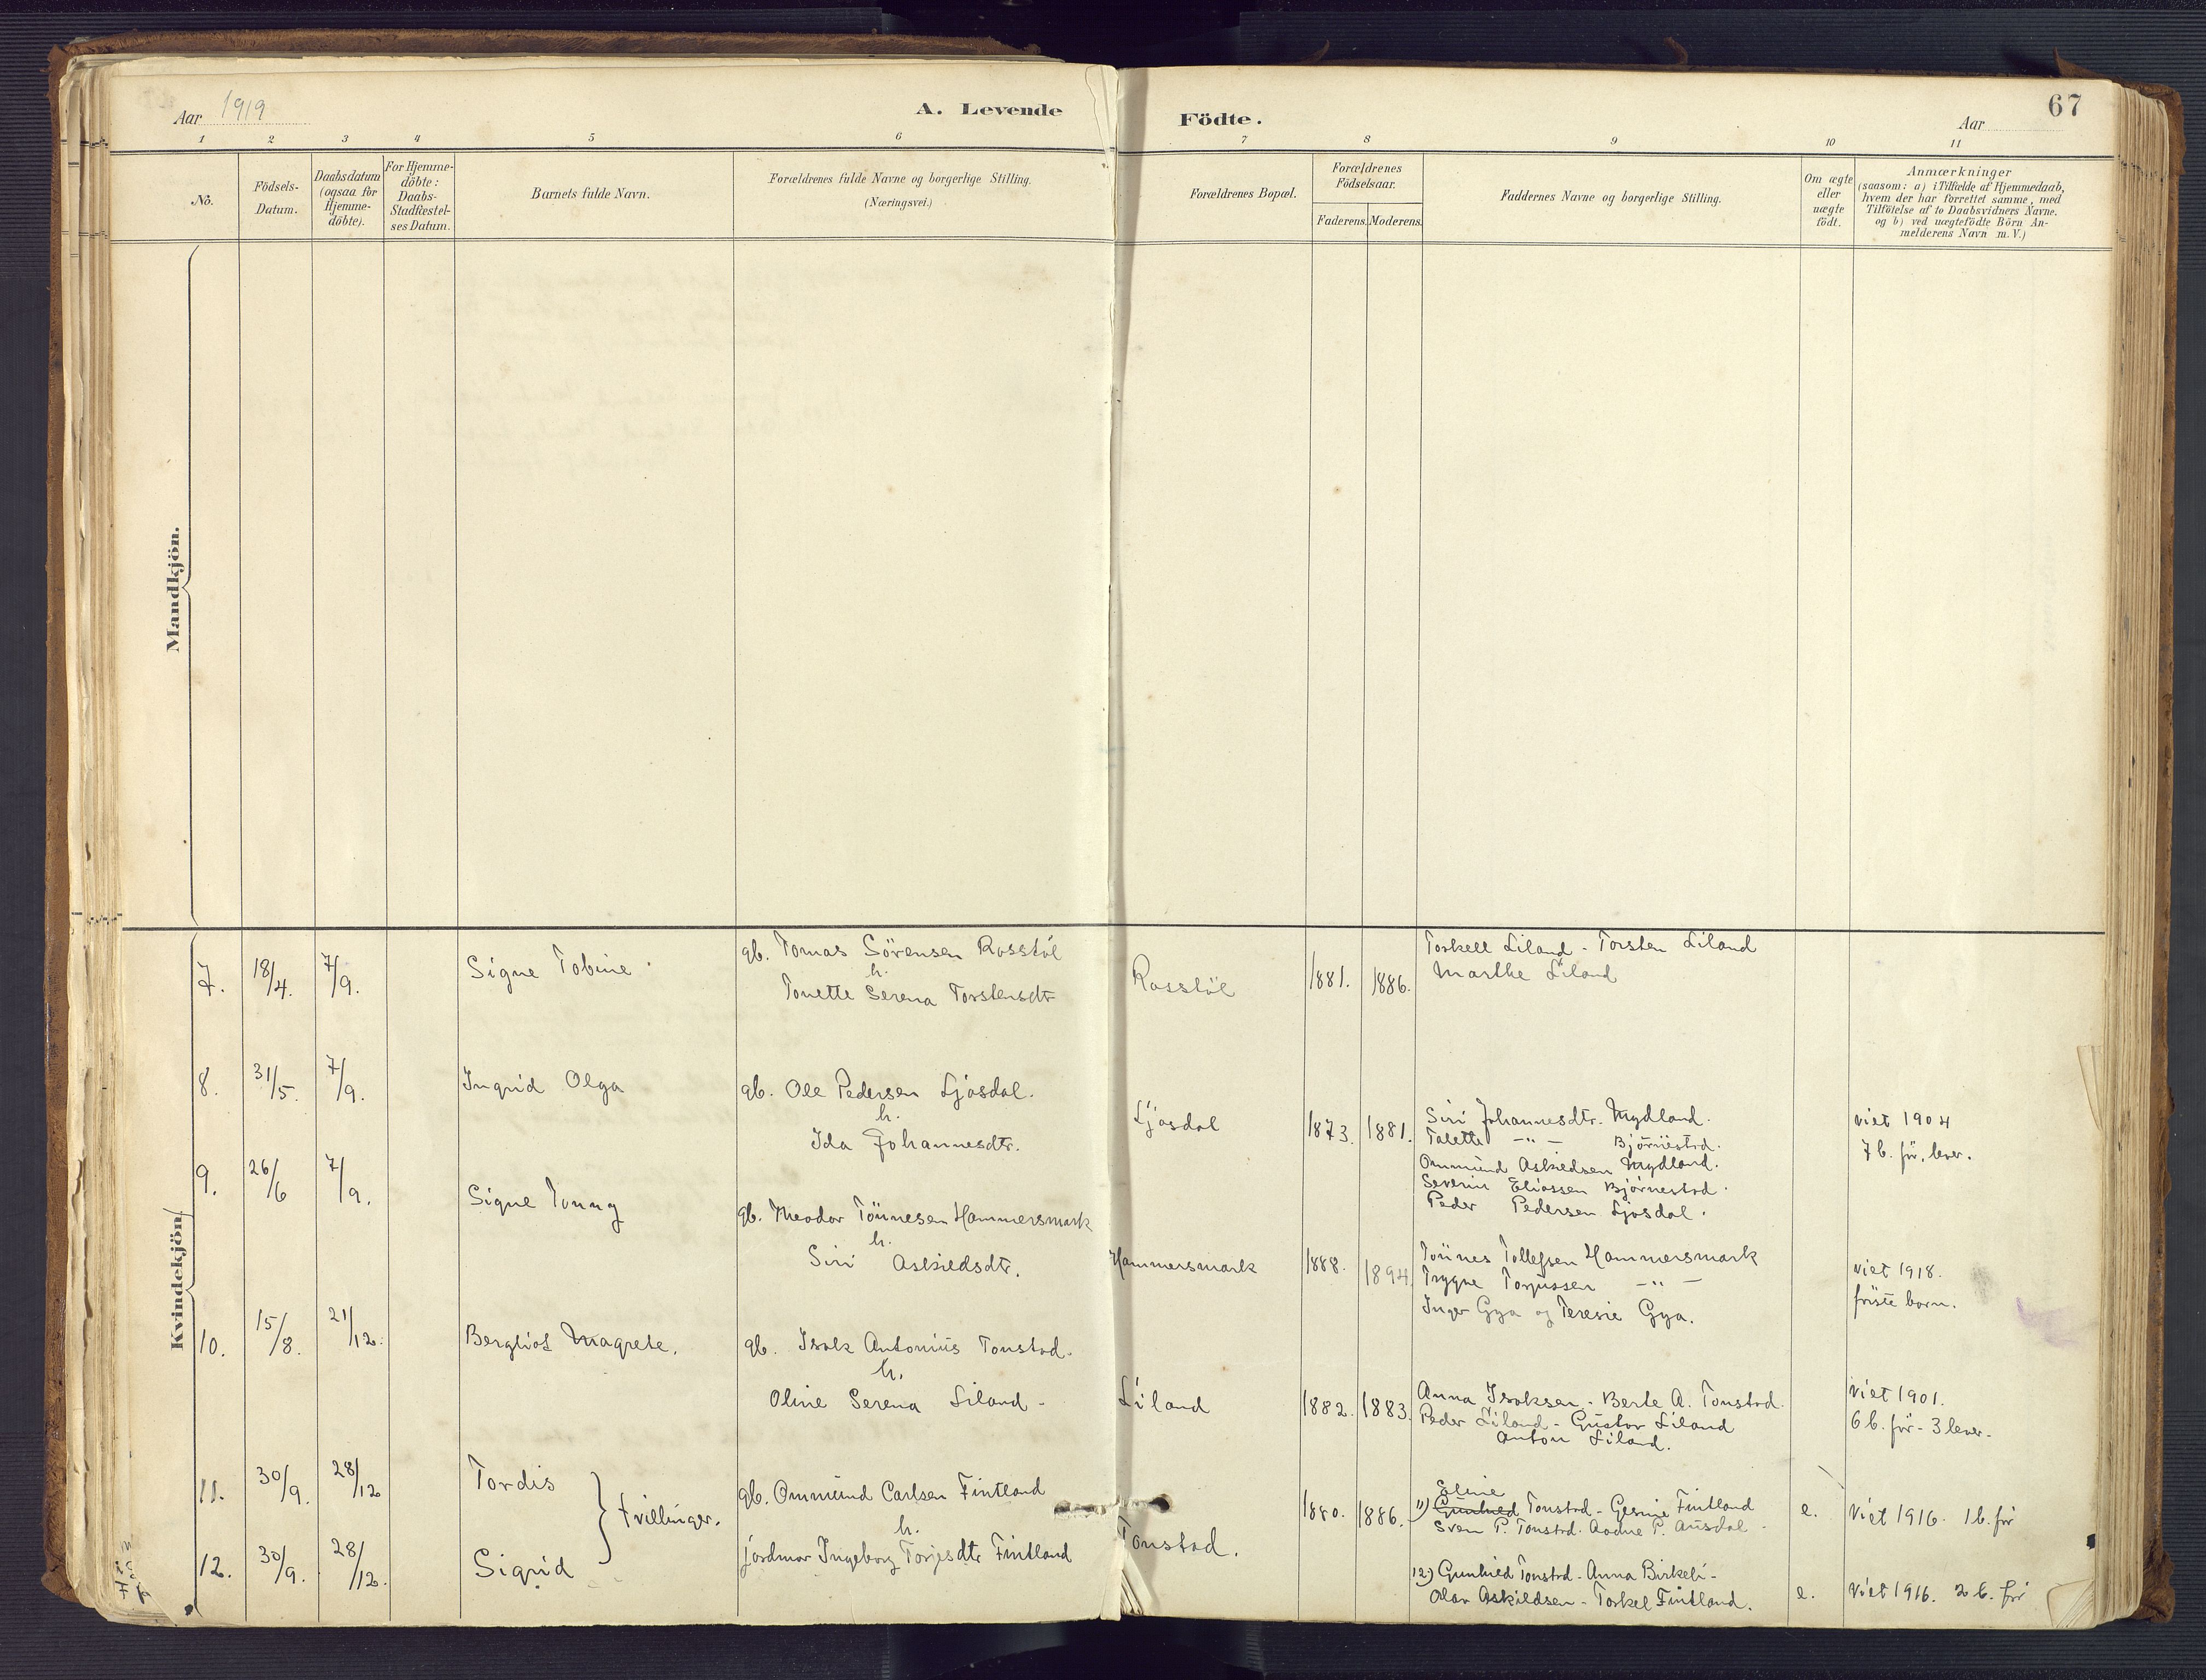 Aar 1919
A. Levende Födte.
Aar
67
1 2 3 4 5 6 7 8 9 10 11
No.
Födsels-
Datum.
Daabsdatum
(ogsaa for
Hjemme-
döbte).
For Hjemme-
döbte:
Daabs-
Stadfæstel-
ses Datum.
Barnets fulde Navn.
Forældrenes fulde Navne og borgerlige Stilling.
(Næringsvei.)
Forældrenes Bopæl.
Forældrenes
Födselsaar.
Faderens. Moderens.
Faddernes Navne og borgerlige Stilling.
Om ægte
eller
uægte
födt.
Anmærkninger
(saasom: a) i Tilfælde af Hjemmedaab,
hvem der har forrettet samme, med
Tilföielse af to Daabsvidners Navne.
og b) ved uægtefödte Börn An-
melderens Navn m. V.)
Mandkjön.
Kvindekjön
7. 18/4. 7/9. Signe Tobine
gb. Tomas Sörensen Rosstöl
h.
Tonette Serena Torstensdtr
Rosstöl 1881. 1886.
Torkell Liland - Torsten Liland
Marthe Liland
8. 31/5. 7/9. Ingrid Olga
gb. Ole Pedersen Ljosdal.
h.
Ida Johannesdtr.
Ljosdal 1873. 1881.
Siri Johannesdtr. Mydland.
Talette -"- Björnestad.
Ommund Askildsen Mydland.
Severin Eliassen Björnestad.
Peder Pedersen Ljosdal.
viet 1904
7 b. för, lever.
9. 26/6 7/9. Signe Tonny
gb. Theodor Tönnesen Hammersmark
h.
Siri Askildsdtr.
Hammersmark 1888. 1894
Tönnes Tollefsen Hammersmark
Trygve Torjussen -"-
Inger Gya og Teresie Gya.
viet 1918.
förste barn.
10. 15/8. 21/12. Bergliot Magrete.
gb. Isak Antonius Tonstad.
h.
Oline Serena Liland -
Liland 1882. 1883.
Anna Isaksen - Berte A. Tonstad.
Peder Liland - Gustav Liland
Anton Liland.
viet 1901.
6 b. för - 3 lever.
11. 30/9. 28/12 Tordis
} tvillinger.
12. 30/9. 28/12. Sigrid
gb. Ommund Carlsen Fintland
h.
jordmor Ingeborg Torjesdtr Fintland
Tonstad.
1880. 1886.
Eline
11) Gunhild Tonstad - Gesine Fintland
Sven P. Tonstad. Aadne P. Ausdal.
e. viet 1916. 1 b. för
12) Gunhild Tonstad - Anna Birkeli -
Olav Askildsen - Torkel Fintland.
e. viet 1916. 2 b. för